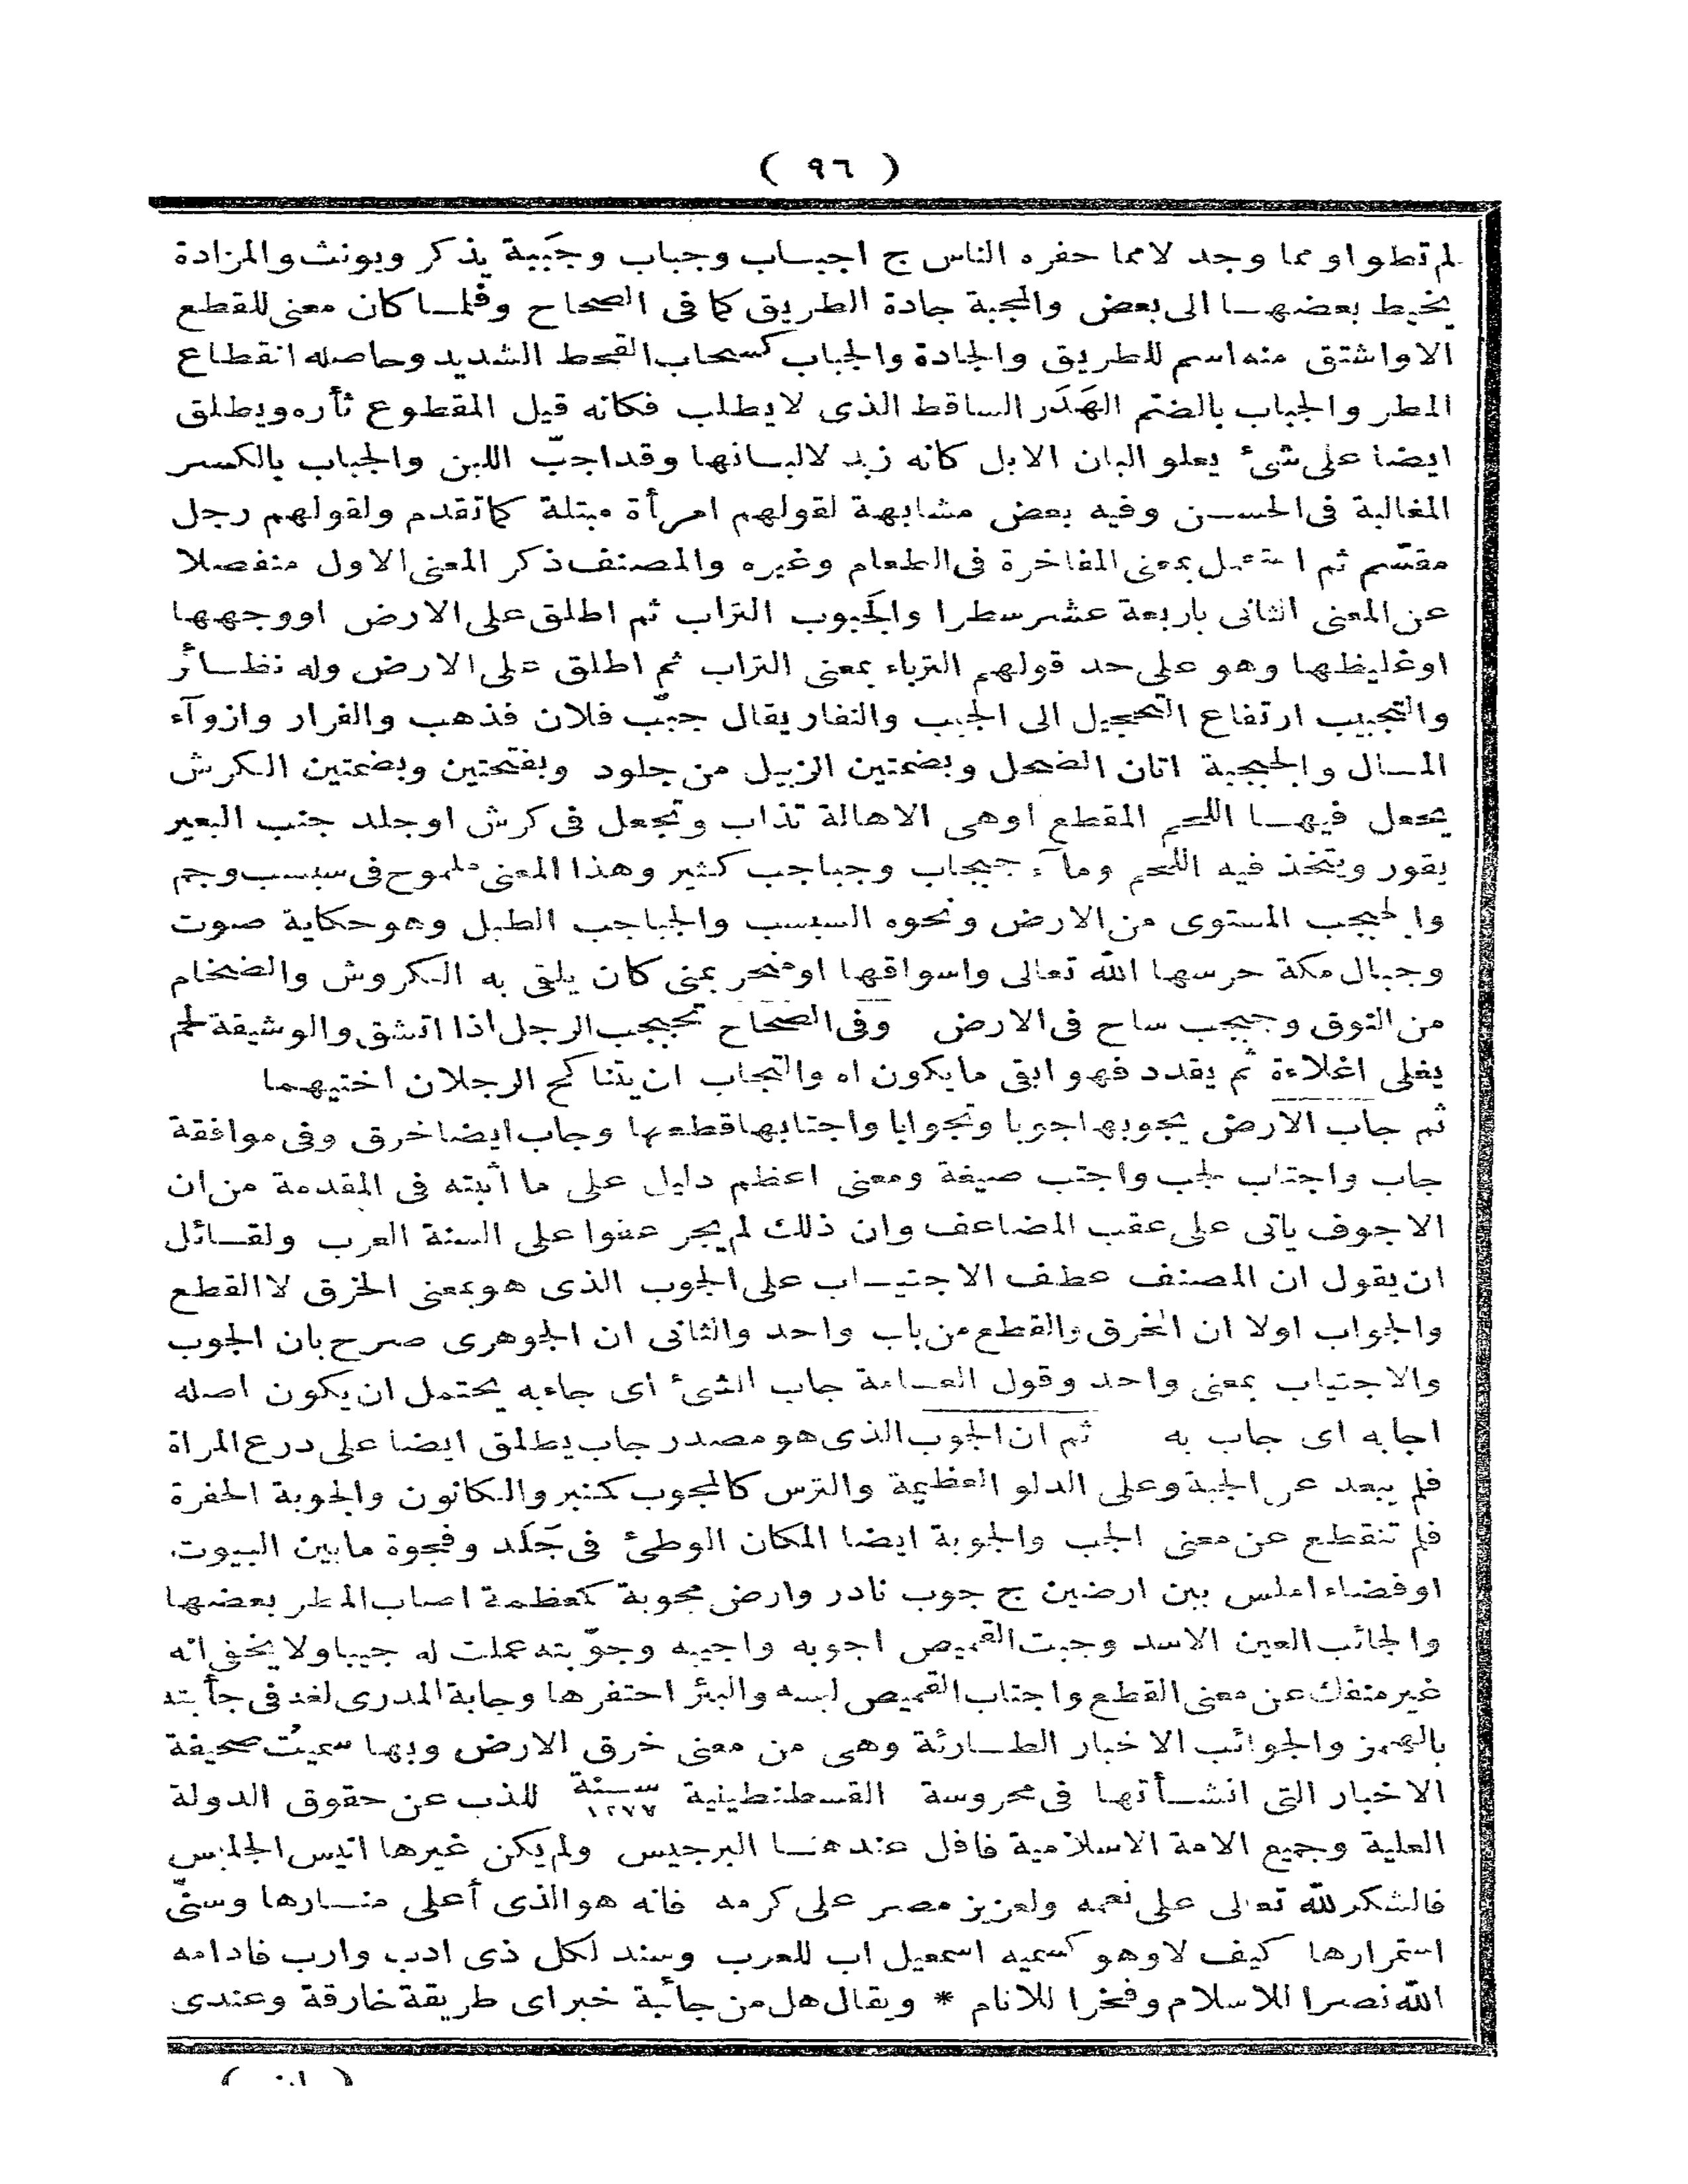 ( ٩٦ )
لم تطو او مما وجد لا مما حفره الناس ج اجباب وجباب وجَبَبة يذكر ويونث والمزادة
يخيط بعضها الى بعض والمجبة جادة الطريق كما فى الصحاح وقلما كان معنى للقطع
الا واشتق منه اسم للطريق والجادة والجباب كسحاب القحط الشديد وحاصله انقطاع
المطر والجباب بالضمّ الهَدَر الساقط الذى لا يطلب فكانه قيل المقطوع ثأره ويطلق
ايضا على شئ يعلو البان الابل كانه زبد لالبانها وقد اجبّ اللبن والجباب بالكسر
المغالبة فى الحسن وفيه بعض مشابهة لقولهم امرأة مبتلة كما تقدم ولقولهم رجل
مقسّم ثم استعمل بمعنى المفاخرة فى الطعام وغيره والمصنف ذكر المعنى الاول منفصلا
عن المعنى الثانى باربعة عشر سطرا والجَبوب التراب ثم اطلق على الارض او وجهها
او غليظها وهو على حد قولهم التربآء بمعنى التراب ثم اطلق على الارض وله نظائر
والتجبيب ارتفاع التحجيل الى الجبب والنفار يقال جبّب فلان فذهب والفرار وازوآء
المال والجبجبة اتان الضحل وبضمتين الزبيل من جلود وبفتحتين وبضمتين الكرش
يجعل فيها اللحم المقطع او هى الاهالة تذاب وتجعل فى كرش او جلد جنب البعير
يقور ويتخذ فيه اللحم ومآء جبجاب وجباجب كثير وهذا المعنى ملموح فى سبسب وجم
والجبجب المستوى من الارض ونحوه السبسب والجباجب الطبل وهو حكاية صوت
وجبال مكة حرسها الله تعالى واسواقها او منحر بمنى كان يلقى به الكروش والضخام
من النوق وجبجب ساح فى الارض وفى الصحاح تجبجب الرجل اذا اتشق والوشيقة لحم
يغلى اغلاءة ثم يقدد فهو ابقى ما يكون اه والتجاب ان يتناكح الرجلان اختيهما
ثم جاب الارض يجوبها جوبا وتجوابا واجتابها قطعها وجاب ايضا خرق وفى موافقة
جاب واجتاب لجب واجتب صيغة ومعنى اعظم دليل على ما اثبته فى المقدمة من ان
الاجوف ياتى على عقب المضاعف وان ذلك لم يجر عفوا على السنة العرب ولقائل
ان يقول ان المصنف عطف الاجتياب على الجوب الذى هو بمعنى الخرق لا القطع
والجواب اولا ان الخرق والقطع من باب واحد والثانى ان الجوهرى صرح بان الجوب
والاجتياب بمعنى واحد وقول العامة جاب الشئ اى جاء به يحتمل ان يكون اصله
اجابه اى جاب به ثم ان الجوب الذى هو مصدر جاب يطلق ايضا على درع المراة
فلم يبعد عن الجبة وعلى الدلو العظيمة والترس كالمجوب كمنبر والكانون والجوبة الحفرة
فلم تنقطع عن معنى الجب والجوبة ايضا المكان الوطئ فى جَلَد وفجوة ما بين البيوت
او فضاء املس بين ارضين ج جوب نادر وارض مجوبة كمعظمة اصاب المطر بعضها
والجائب العين الاسد وجبت القميص اجوبه واجيبه وجوّبته عملت له جيبا ولا يخفى انه
غير منفك عن معنى القطع واجتاب القميص لبسه والبئر احتفرها وجابة المدرى لغة فى جأبته
بالهمز والجوائب الاخبار الطارئة وهى من معنى خرق الارض وبها سميتُ صحيفة
الاخبار التى انشأتها فى محروسة القسطنطينية سنة ١٢٧٧ للذب عن حقوق الدولة
العلية وجميع الامة الاسلامية فافل عندها البرجيس ولم يكن غيرها انيس الجليس
فالشكر لله تعالى على نعمه ولعزيز مصر على كرمه فانه هو الذى أعلى منارها وسنّى
استمرارها كيف لا وهو كسميه اسمعيل اب للعرب وسند لكل ذى ادب وارب فادامه
الله نصرا للاسلام وفخرا للانام * ويقال هل من جأئبة خبر اى طريقة خارقة وعندى